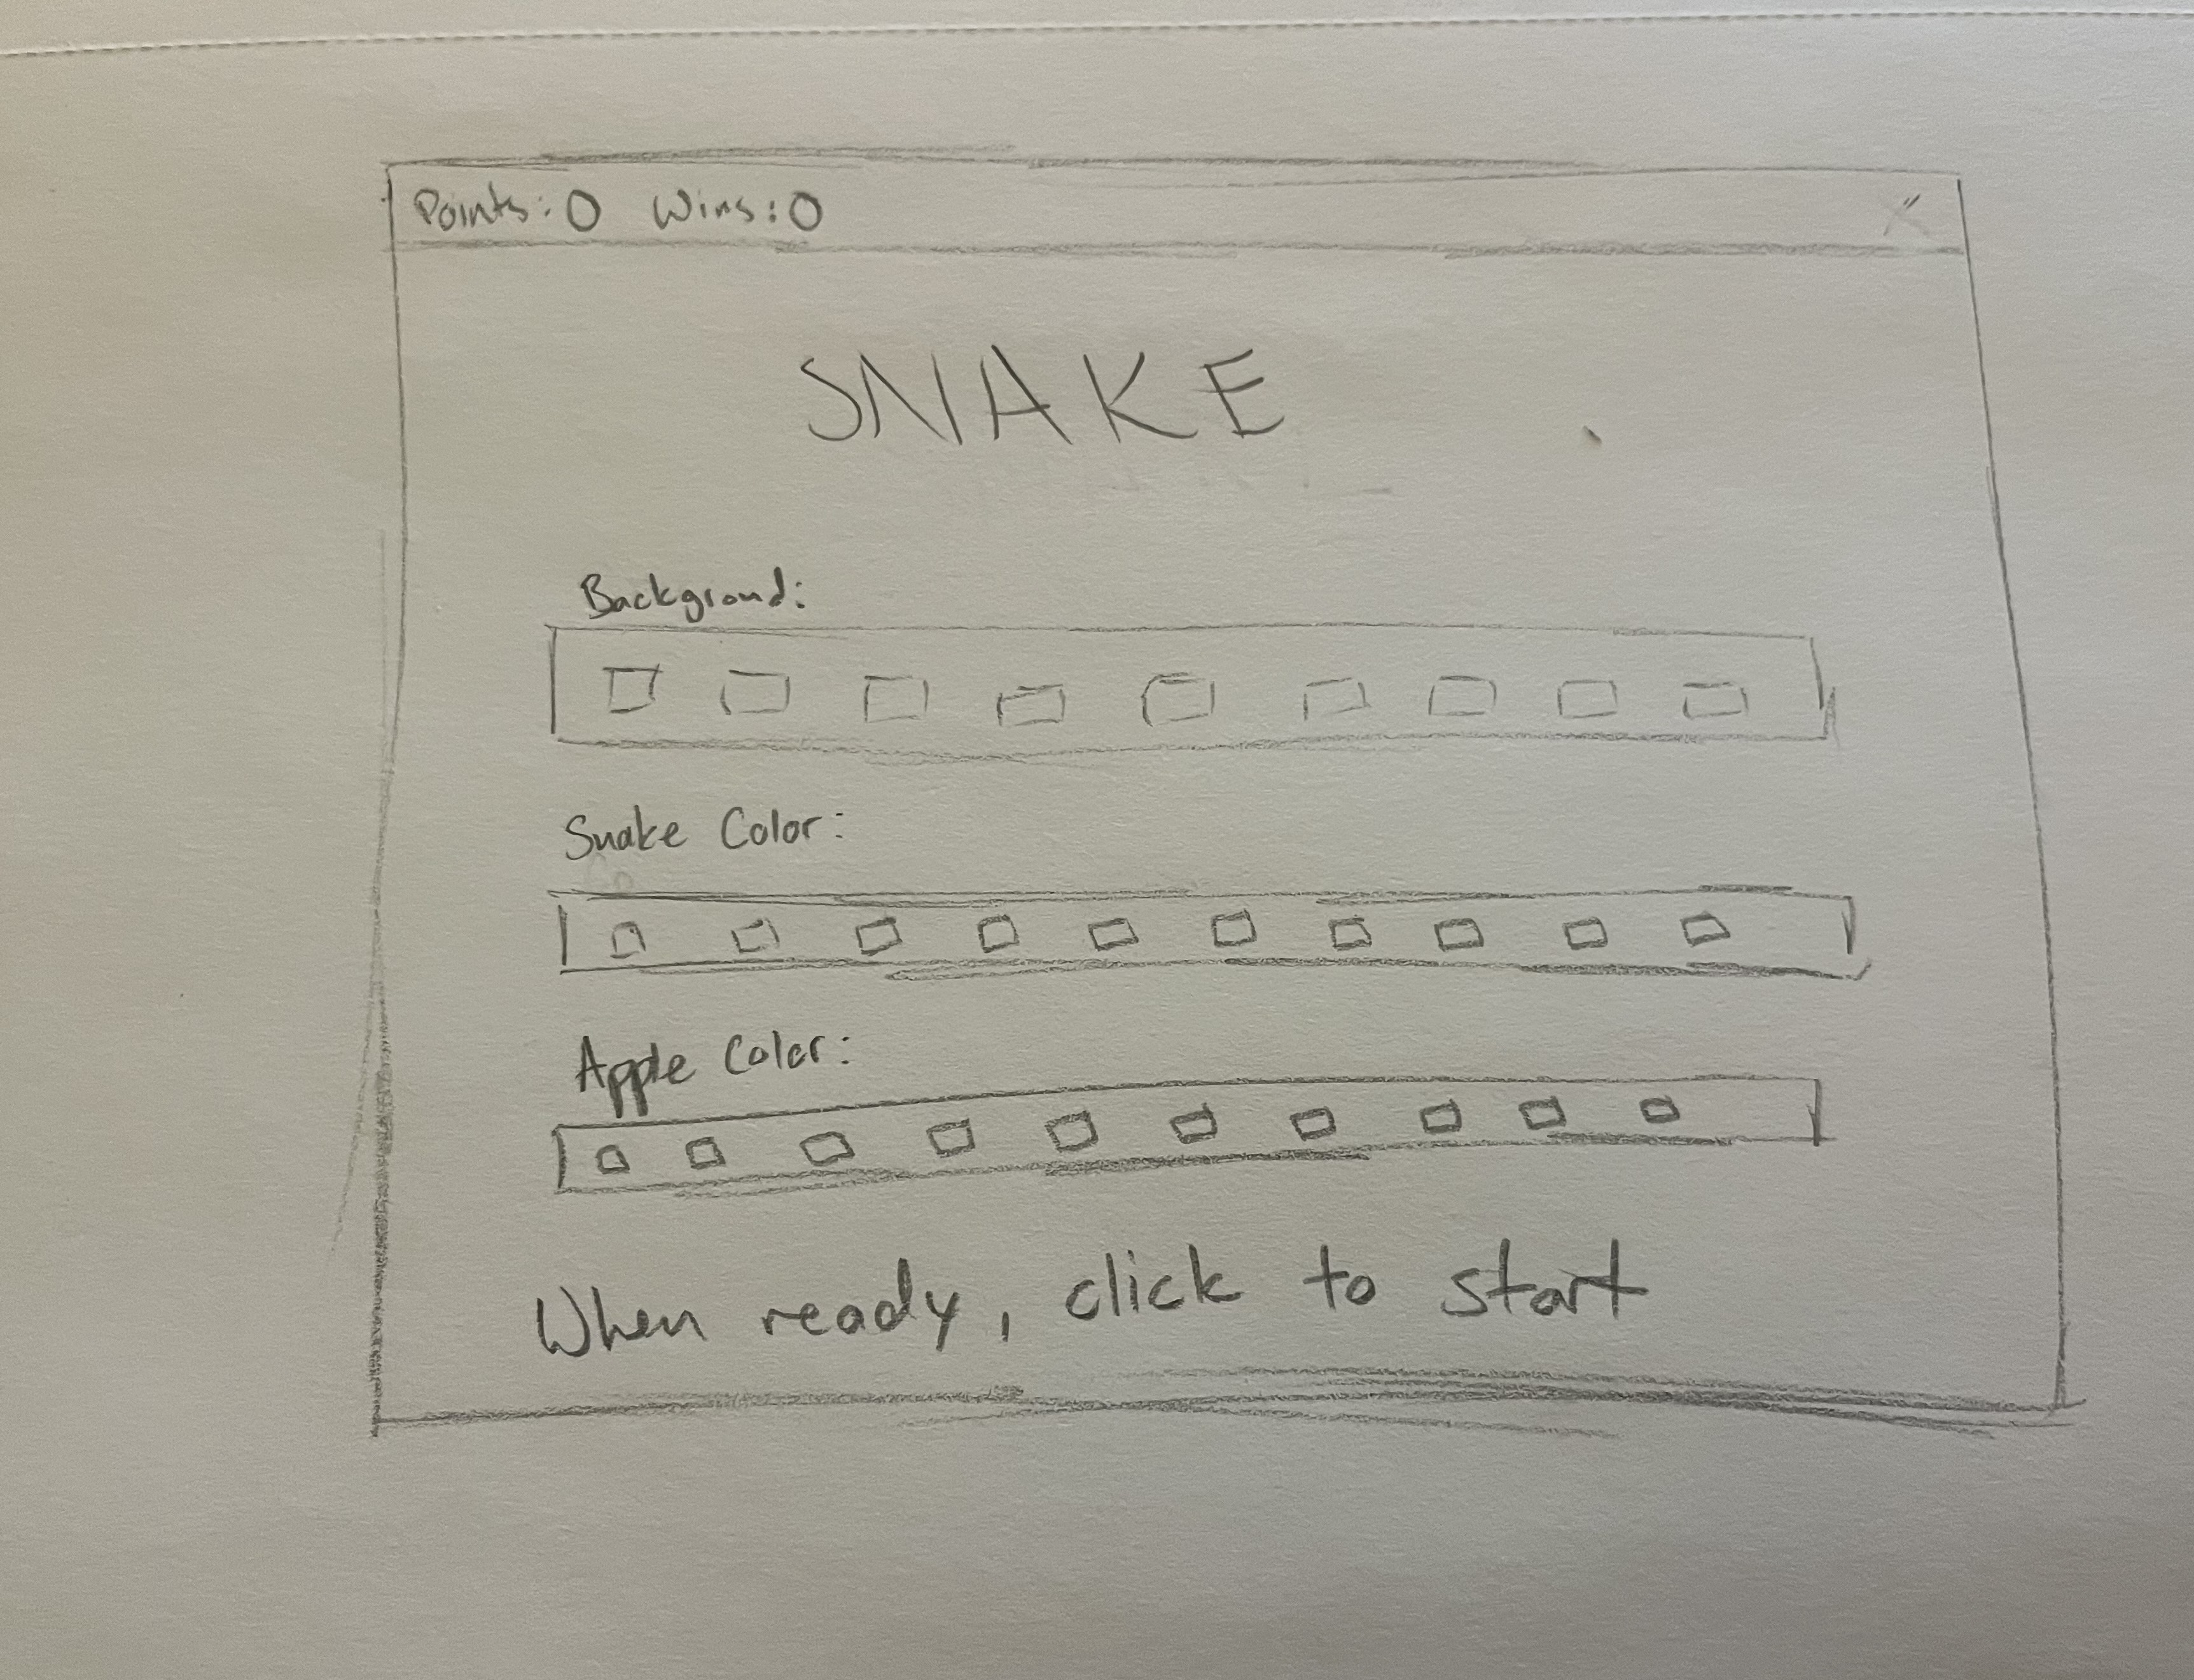 Points: 0 Wins: 0 X
SNAKE
Background:
Snake Color:
Apple Color:
When ready, click to start